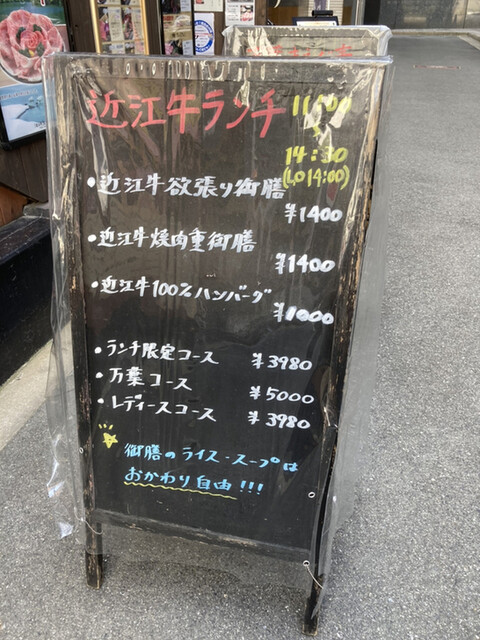 近江牛ランチ 11:00
~
14:30
(LO14:00)
・近江牛欲張り御膳
¥1400
・近江牛焼肉重御膳
¥1400
・近江牛100%ハンバーグ
¥1000
・ランチ限定コース ¥3980
・万葉コース ¥5000
・レディースコース ¥3980
御膳のライス・スープは
おかわり自由!!!